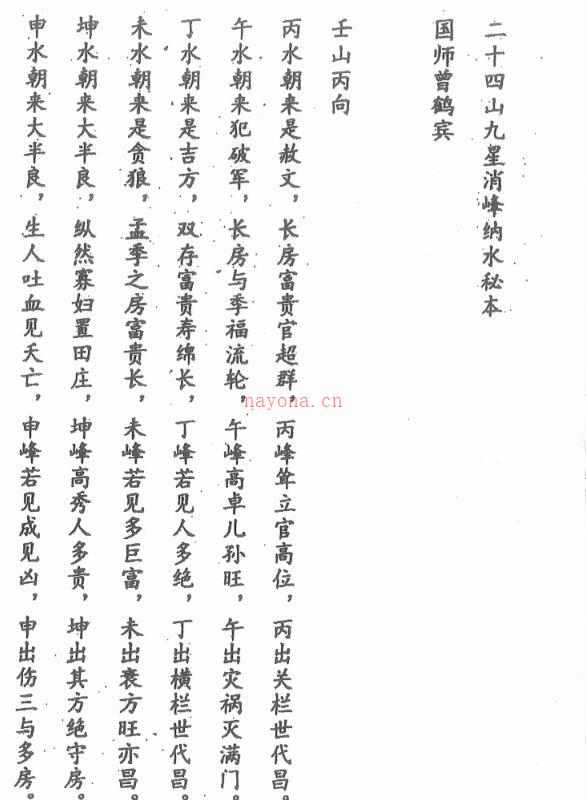 二十四山九星消峰纳水秘本
国师曾鹤宾
壬山丙向
丙水朝来是赦文，长房富贵官超群，丙峰耸立官高位，丙出关栏世代昌。
午水朝来犯破军，长房与季福流轮，午峰高卓儿孙旺，午出灾祸灭满门。
丁水朝来是吉方，双存富贵寿绵长，丁峰若见人多绝，丁出横栏世代昌。
未水朝来是贪狼，孟季之房富贵长，未峰若见多巨富，未出衰方旺亦昌。
坤水朝来大半良，纵然寡妇置田庄，坤峰高秀人多贵，坤出其方绝守房。
申水朝来大半良，生人吐血见夭亡，申峰若见成见凶，申出伤三与多房。
nayona.cn